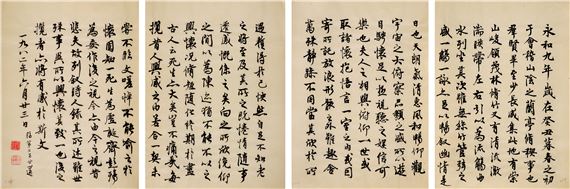 永和九年歲在癸丑暮春之初
會于會稽山陰之蘭亭脩稧事也
群賢畢至少長咸集此地有崇
山峻領茂林脩竹又有清流激
湍暎帶左右引以為流觴曲
水列坐其次雖無絲竹管弦之
盛一觴一詠亦足以暢叙幽情是
日也天朗氣清惠風和暢仰觀
宇宙之大俯察品類之盛所以遊
目騁懷足以極視聽之娛信可
樂也夫人之相與俯仰一世或
取諸懷抱悟言一室之內或因
寄所託放浪形骸之外雖趣舍
萬殊靜躁不同當其欣於所
遇蹔得於己快然自足不知老
之將至及其所之既惓情隨事
遷感慨係之矣向之所欣俛仰
之間以為陳迹猶不能不以之
興懷況脩短隨化終期於盡
古人云死生亦大矣豈不痛哉每
攬昔人興感之由若合一契未
嘗不臨文嗟悼不能喻之於
懷固知一死生為虛誕齊彭殤
為妄作後之視今亦由今之視昔
悲夫故列叙時人錄其所述雖世
殊事異所以興懷其致一也後之
攬者亦將有感於斯文
一九八二年六月廿三日